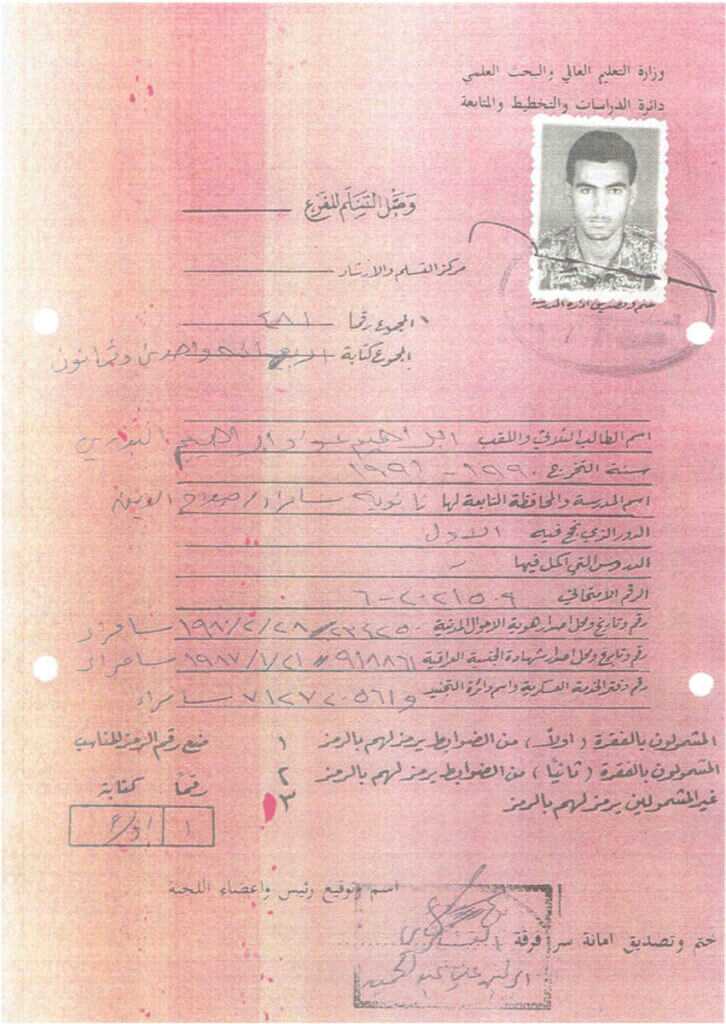 وزارة التعليم العالي والبحث العلمي
دائرة الدراسات والتخطيط والمتابعة
وصل التسلم للفرع
مركز التسلم والارشاد
ختم وتصديق الادارة المدرسية
المجموع رقما ٤٨١
المجموع كتابة اربعمائة وواحد وثمانون
اسم الطالب الثلاثي واللقب ابراهيم عواد ابراهيم البدري
سنة التخرج ١٩٩٠ - ١٩٩١
اسم المدرسة والمحافظة التابعة لها ثانوية سامراء / صلاح الدين
الدور الذي نجح فيه الاول
الدروس التي اكمل فيها -
الرقم الامتحاني ٢٠٢١٥٠٩-٦
رقم وتاريخ ومحل اصدار هوية الاحوال المدنية ٢٣٤٢٥٠ ١٩٨٠/٢/٢٨ سامراء
رقم وتاريخ ومحل اصدار شهادة الجنسية العراقية ٩١٨٨٦١ ١٩٨٧/١/٢١ سامراء
رقم دفتر الخدمة العسكرية واسم دائرة التجنيد سامراء
المشمولون بالفقرة (اولاً) من الضوابط يرمز لهم بالرمز ١ ضع رقم الرمز المناسب
المشمولون بالفقرة (ثانياً) من الضوابط يرمز لهم بالرمز ٢
غير المشمولين يرمز لهم بالرمز ٣
رقماً كتابة
١
اسم وتوقيع رئيس واعضاء اللجنة
ختم وتصديق امانة سر فرقة